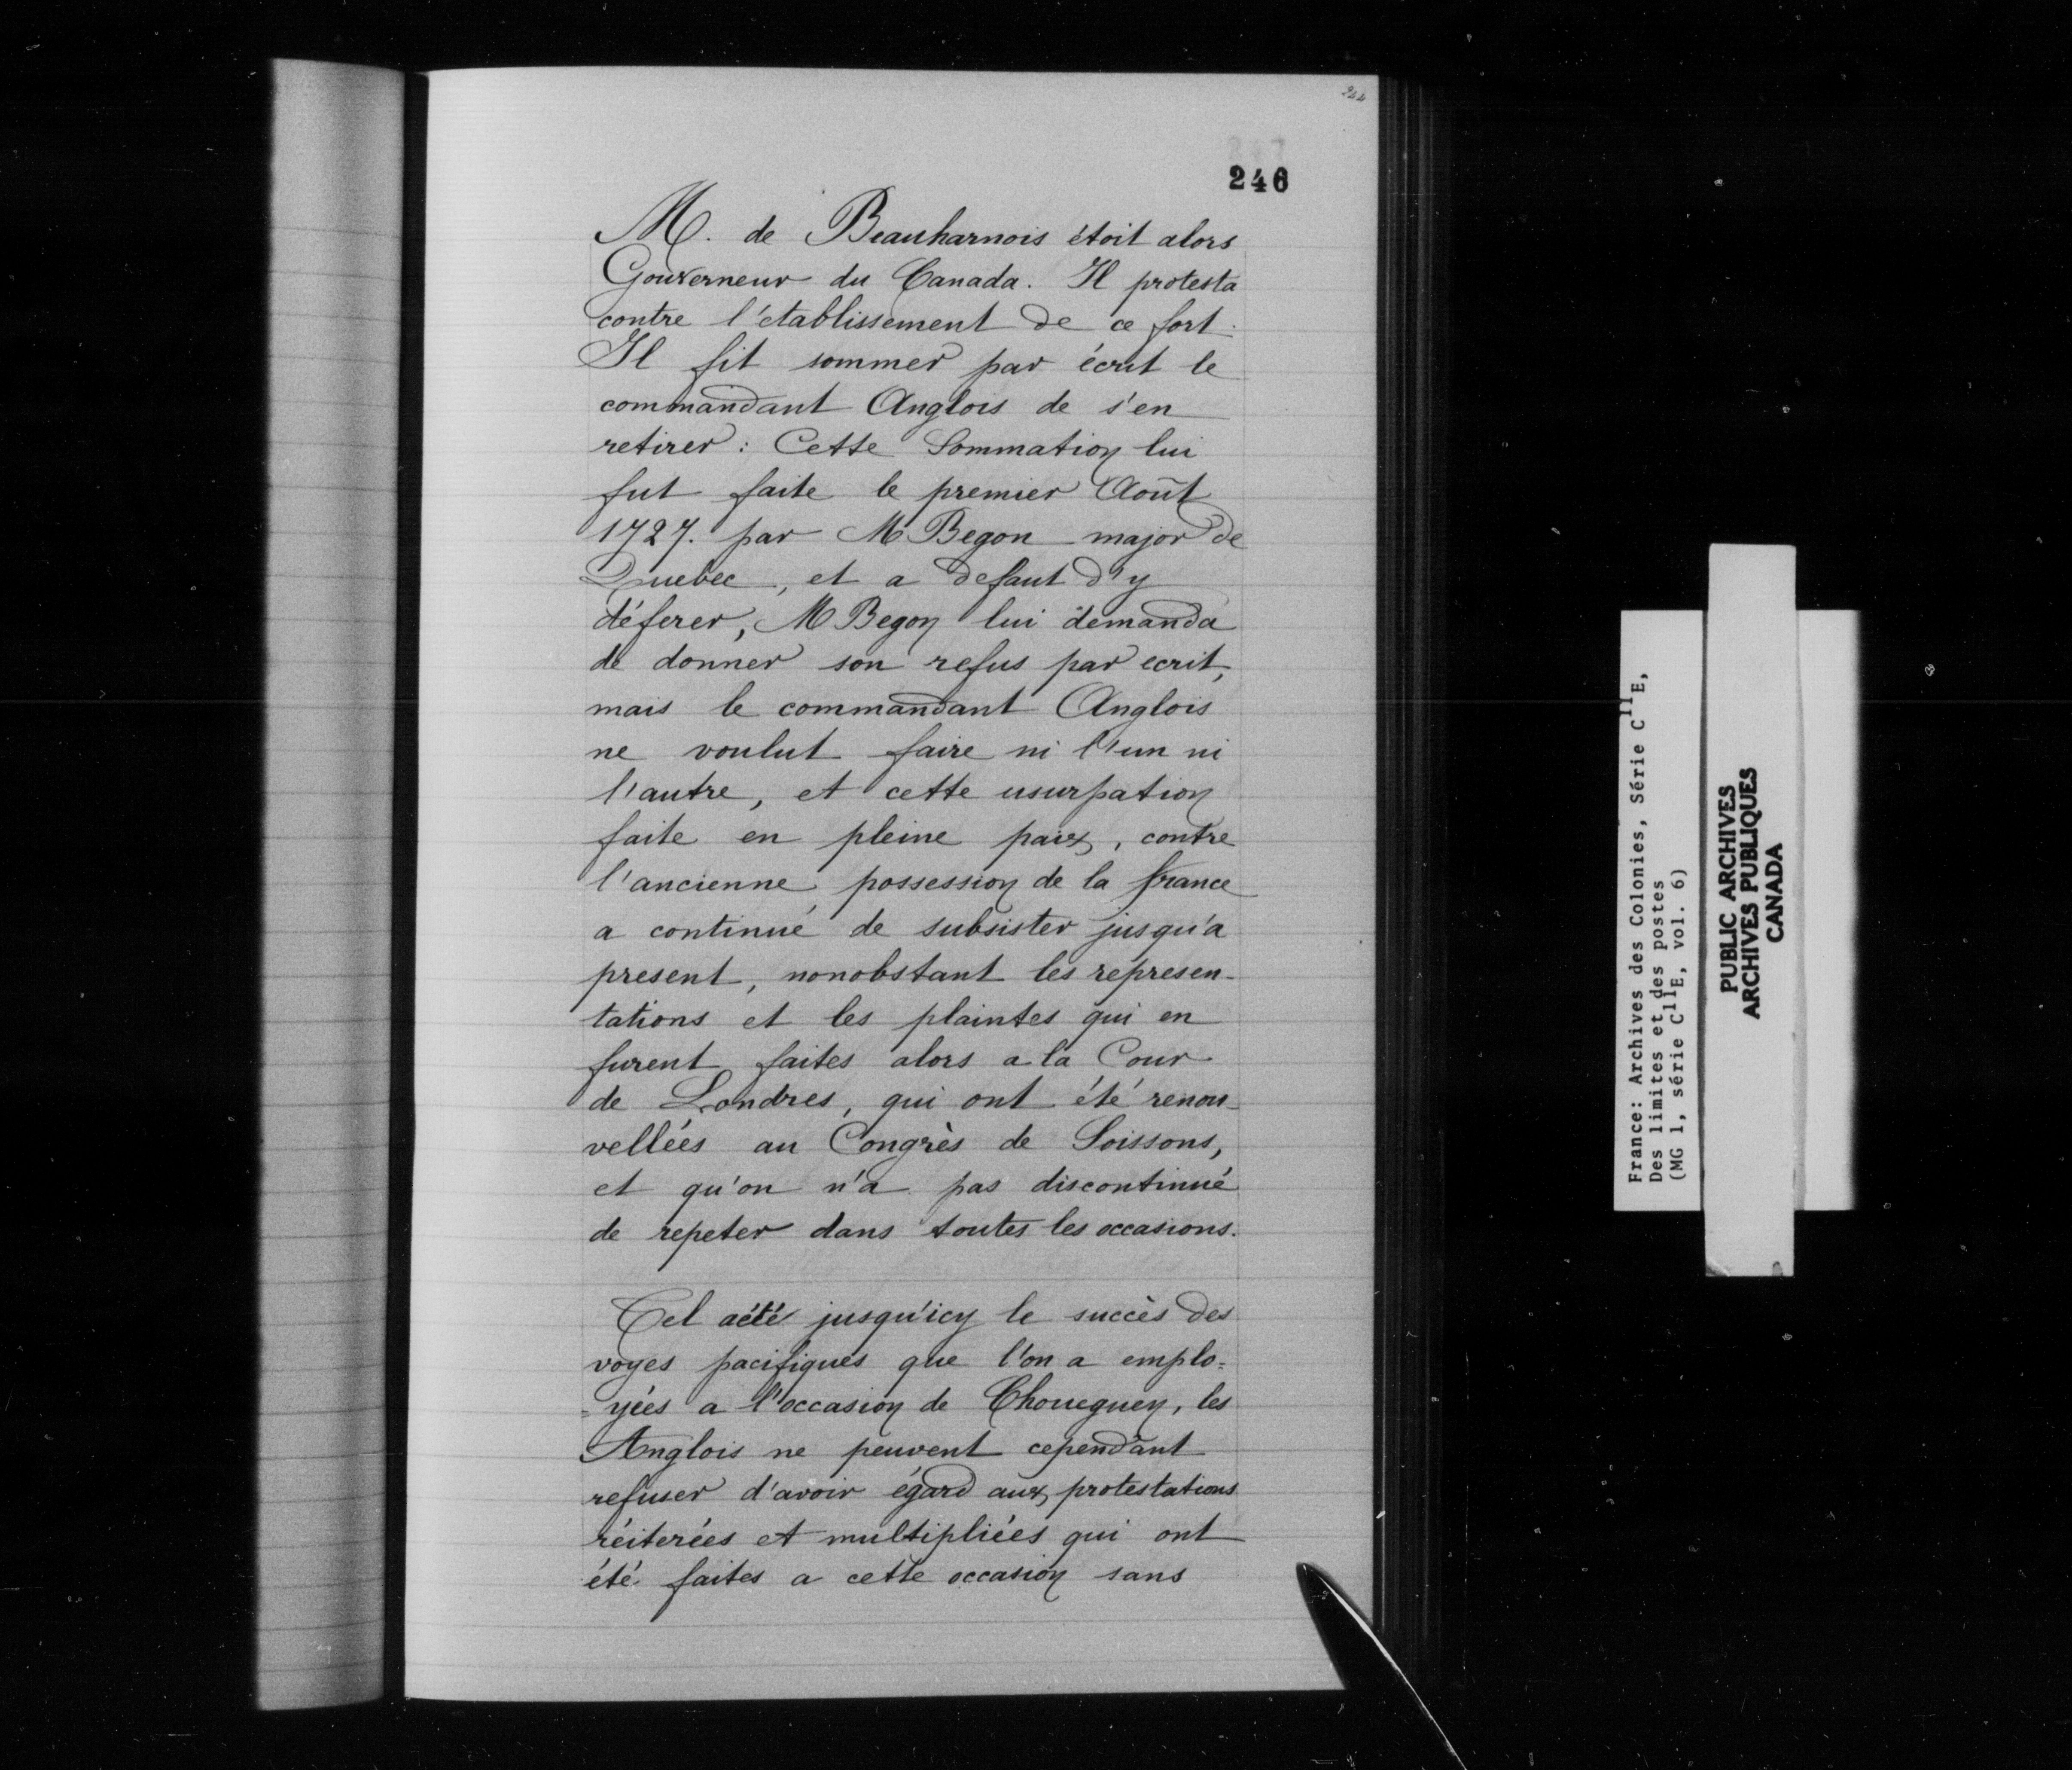 244
246
M. de Beauharnois étoit alors
Gouverneur du Canada. Il protesta
contre l'etablissement de ce fort.
Il fit sommer par écrit le
commandant Anglois de s'en
retirer : Cette Sommation lui
fut faite le premier Août
1727. par M Begon major de
Quebec, et a defaut d'y
déferer, M Begon lui demanda
de donner son refus par ecrit,
mais le commandant Anglois
ne voulut faire ni l'un ni
l'autre, et cette usurpation
faite en pleine paix, contre
l'ancienne possession de la france
a continué de subsister jusqu'a
present, nonobstant les represen-
tations et les plaintes qui en
furent faites alors a la Cour
de Londres, qui ont été renou-
vellées au Congrès de Soissons,
et qu'on n'a pas discontinué
de repeter dans toutes les occasions.
Tel a été jusqu'icy le succès des
voyes pacifiques que l'on a emplo=
=yées a l'occasion de Choueguen, les
Anglois ne peuvent cependant
refuser d'avoir égard aux protestations
réiterées et multipliées qui ont
été faites a cette occasion sans
France: Archives des Colonies, Série C11E,
Des limites et des postes
(MG 1, série C11E, vol. 6)
PUBLIC ARCHIVES
ARCHIVES PUBLIQUES
CANADA